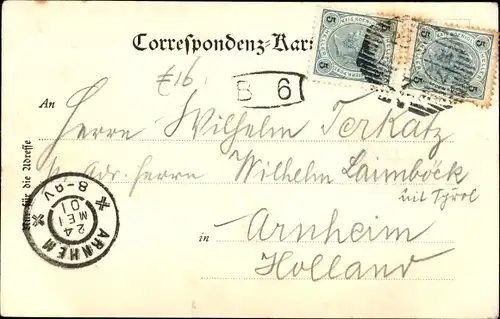 Correspondenz-Kar
5 5 5 5
£16
B 6
An
Herrn Wilhelm Terkatz
Nur für die Adresse
Adr. Herrn Wilhelm Laimböck
mit Tyrol
in Arnheim
Holland
ARNHEM
24
MEI
01
8-9V